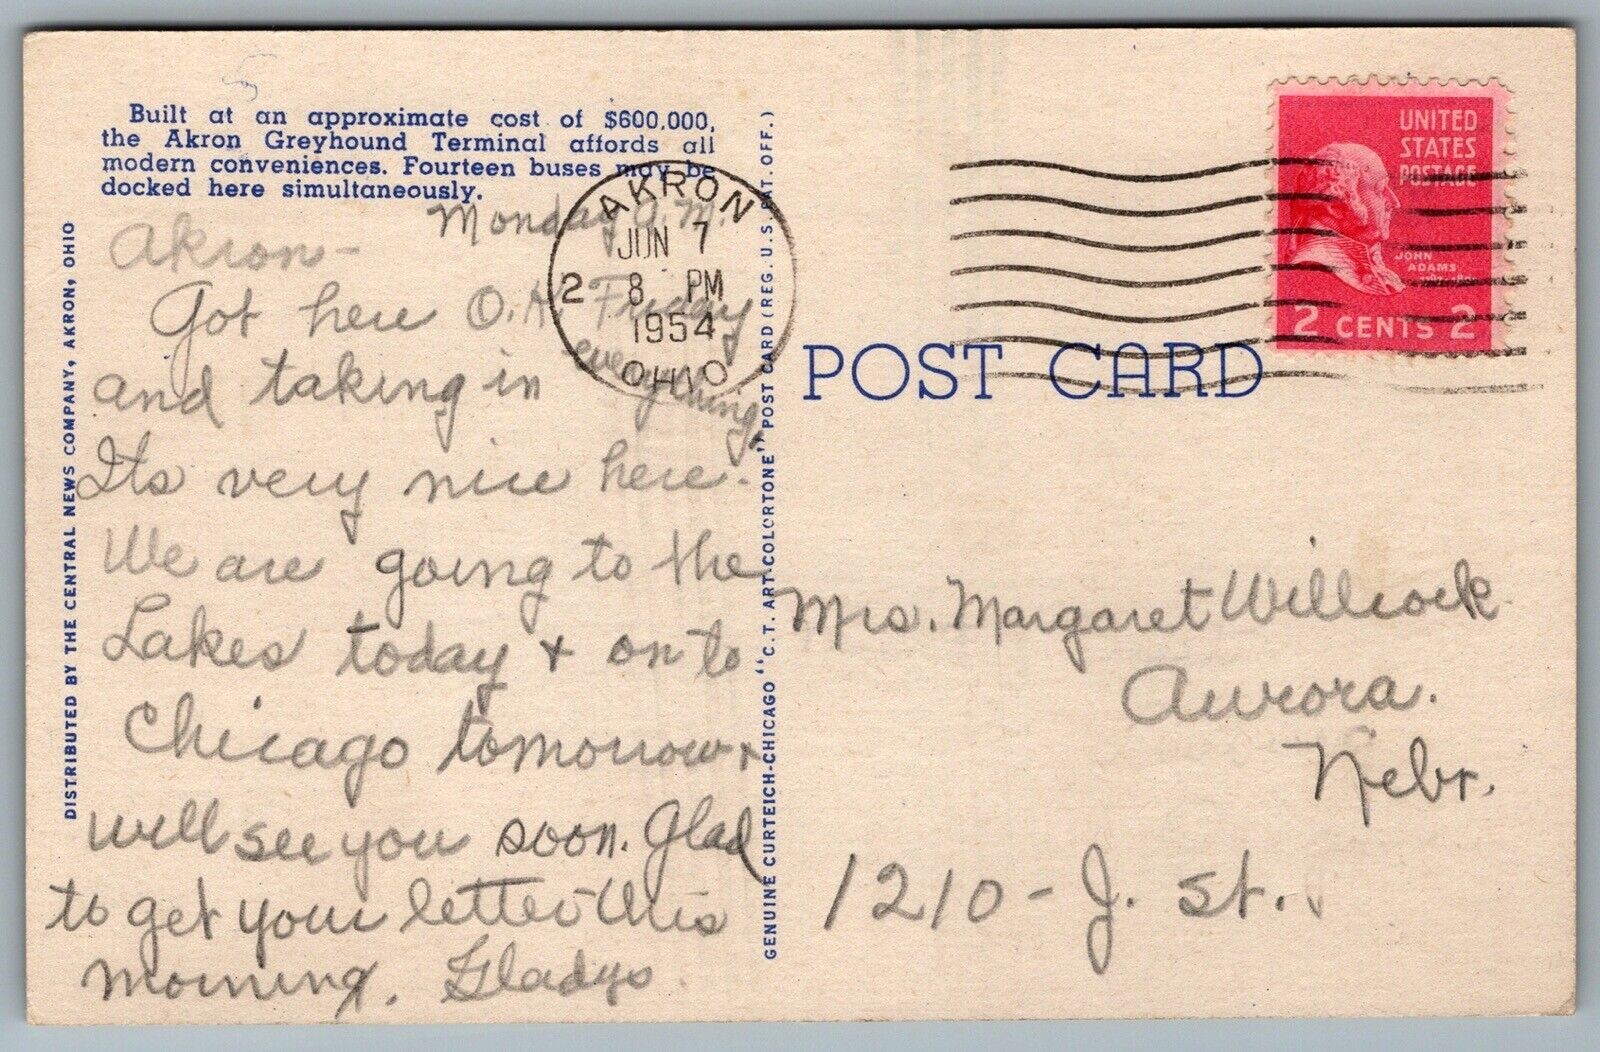 5
Built at an approximate cost of $600,000,
the Akron Greyhound Terminal affords all
modern conveniences. Fourteen buses may be
docked here simultaneously.
Monday a.m.
Akron-
Got here O.K. Friday
and taking in everything.
Its very nice here.
We are going to the
Lakes today + on to
Chicago tomorrow +
will see you soon. Glad
to get your letter this
morning. Gladys
DISTRIBUTED BY THE CENTRAL NEWS COMPANY, AKRON, OHIO
GENUINE CURTEICH-CHICAGO "C. T. ART-COLORTONE" POST CARD (REG. U. S. PAT. OFF.)
AKRON
JUN 7
2 8 PM
1954
OHIO
UNITED
STATES
POSTAGE
JOHN
ADAMS
1797-1801
2 CENTS 2
POST CARD
Mrs. Margaret Willcock
Aurora.
Nebr.
1210 - J. St.